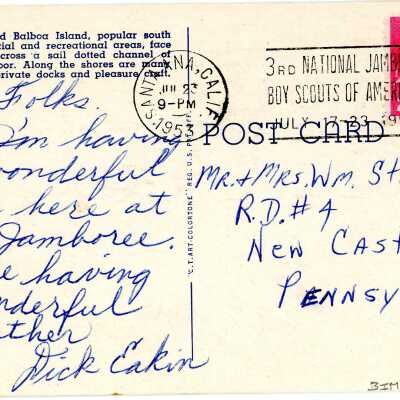 d Balboa Island, popular south
tial and recreational areas, face
cross a sail dotted channel of
oor. Along the shores are many
private docks and pleasure craft.
Folks.
I'm having
wonderful
here at
Jamboree.
e having
nderful
ather
Dick Eakin
"C.T. ART-COLORTONE" REG. U.S. PAT. OFF.
SANTA ANA, CALIF.
JUL 23
9-PM
1953
3RD NATIONAL JAMB
BOY SCOUTS OF AMER
JULY 17-23, 19
POST CARD
Mr. & Mrs. Wm. St
R.D. #4
New Cast
Pennsy
BIM